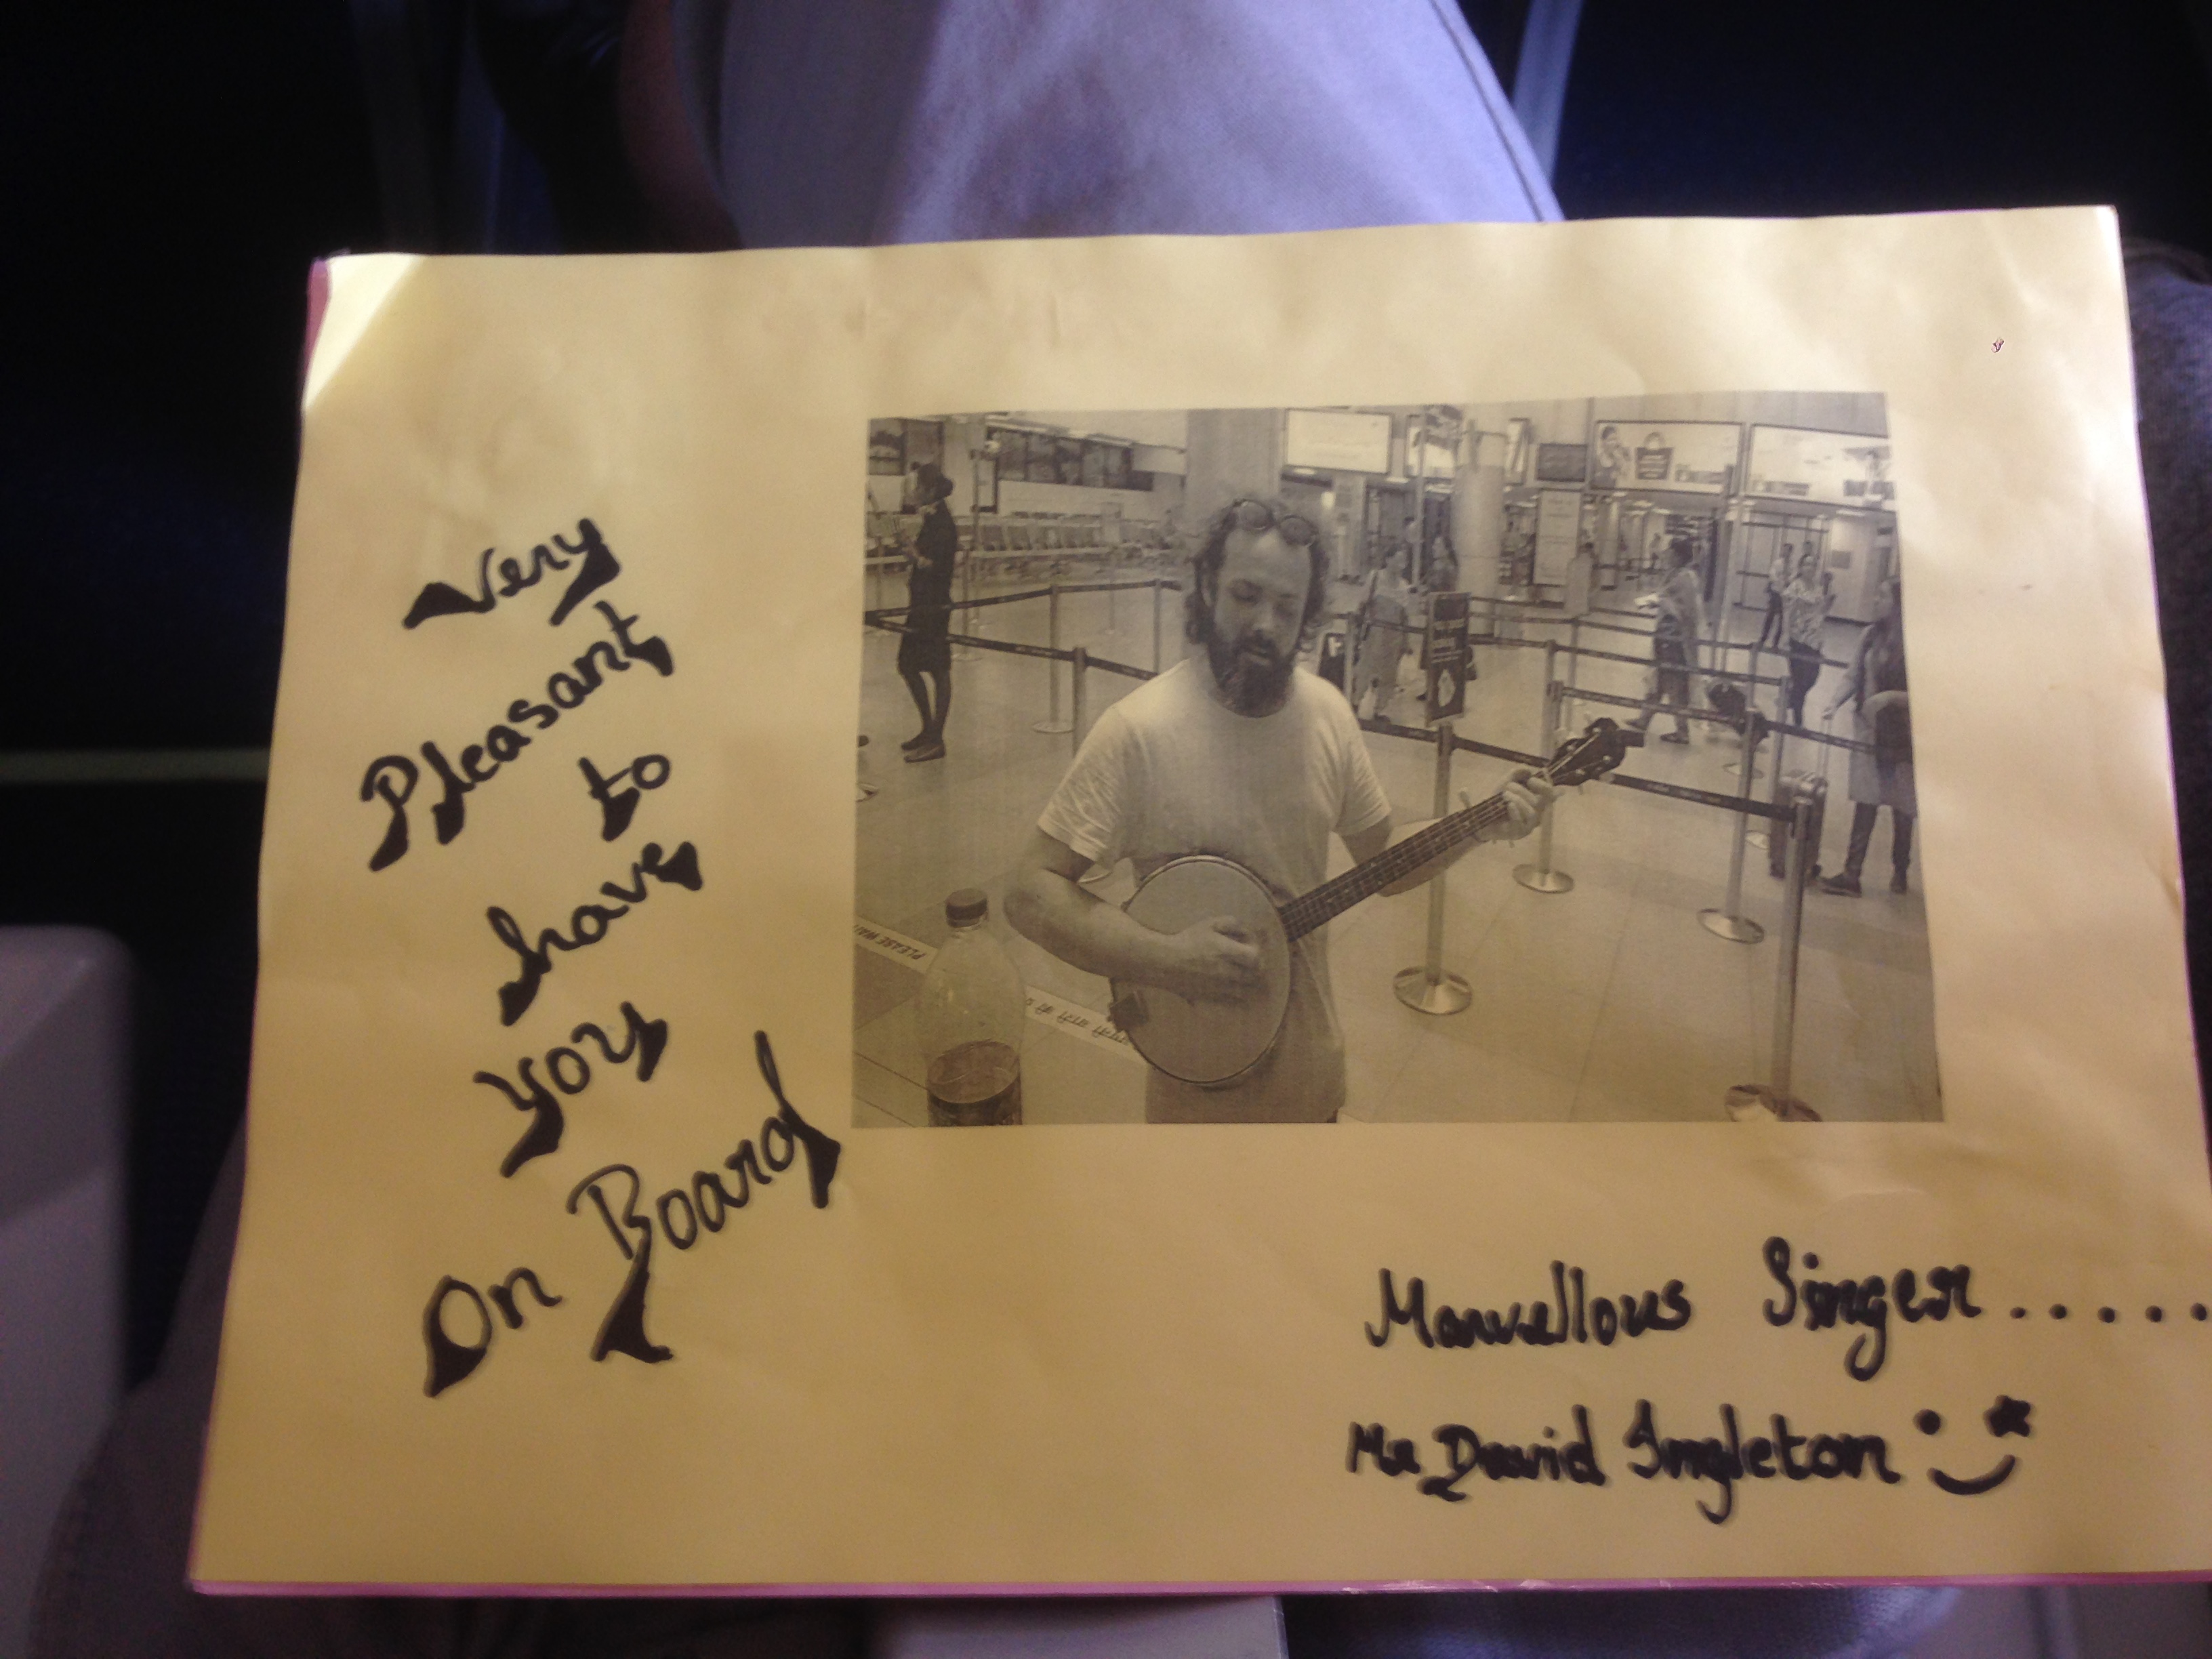 Very
Pleasant
to
have
you
On Board
PLEASE WAIT
Marvellous Singer.....
Mr David Singleton